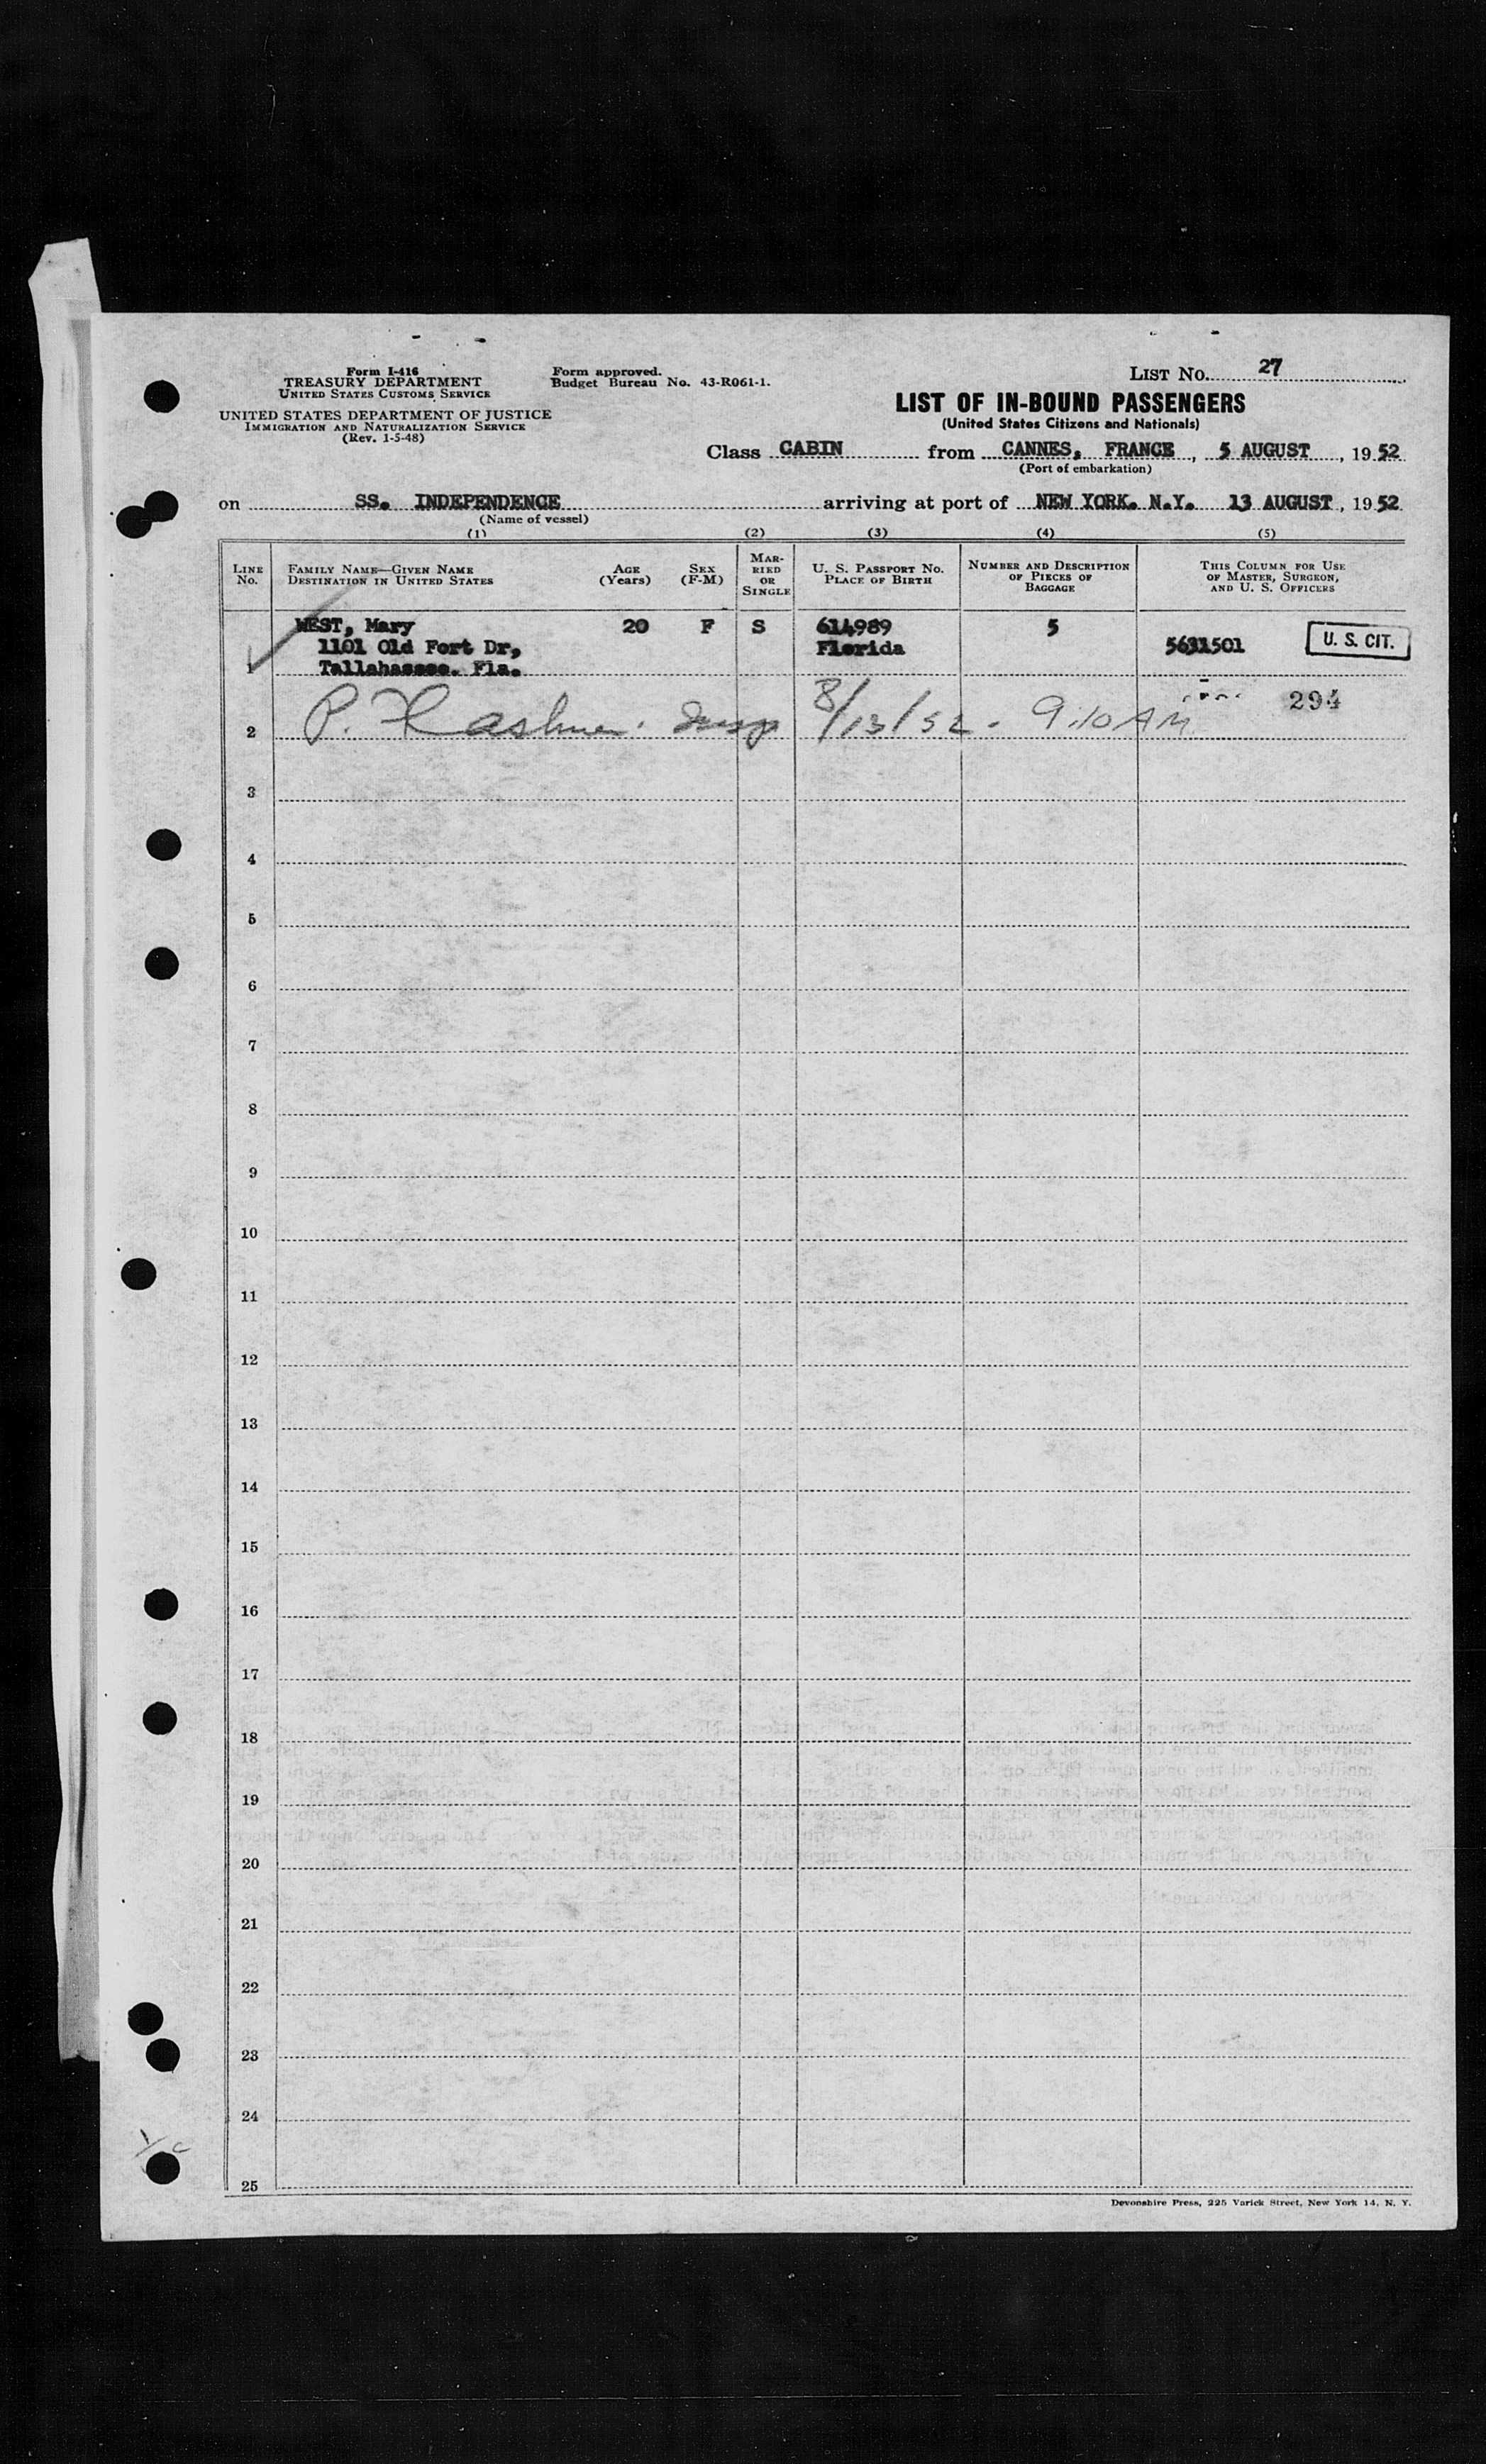 Form I-416
TREASURY DEPARTMENT
UNITED STATES CUSTOMS SERVICE
UNITED STATES DEPARTMENT OF JUSTICE
IMMIGRATION AND NATURALIZATION SERVICE
(Rev. 1-5-48)
Form approved.
Budget Bureau No. 43-R061-1.
LIST NO. 27
LIST OF IN-BOUND PASSENGERS
(United States Citizens and Nationals)
Class CABIN from CANNES, FRANCE, 5 AUGUST, 1952
(Port of embarkation)
on SS. INDEPENDENCE arriving at port of NEW YORK. N.Y. 13 AUGUST, 1952
(Name of vessel)
(1) (2) (3) (4) (5)
LINE NO.
FAMILY NAME—GIVEN NAME
DESTINATION IN UNITED STATES
AGE (Years)
SEX (F-M)
MARRIED OR SINGLE
U. S. PASSPORT NO.
PLACE OF BIRTH
NUMBER AND DESCRIPTION OF PIECES OF BAGGAGE
THIS COLUMN FOR USE OF MASTER, SURGEON, AND U. S. OFFICERS
WEST, Mary 20 F S 614989 5
1101 Old Fort Dr, Florida 5631501 U. S. CIT.
1 Tallahassee. Fla.
294
2 P. 8/13/52 - 9:10 AM
3
4
5
6
7
8
9
10
11
12
13
14
15
16
17
18
19
20
21
22
23
24
25
Devonshire Press, 225 Varick Street, New York 14, N. Y.